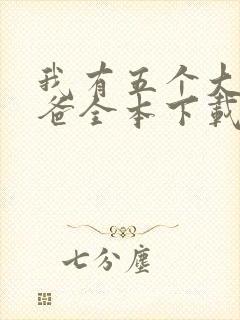 我有五个大
爸全本下载
七分尘